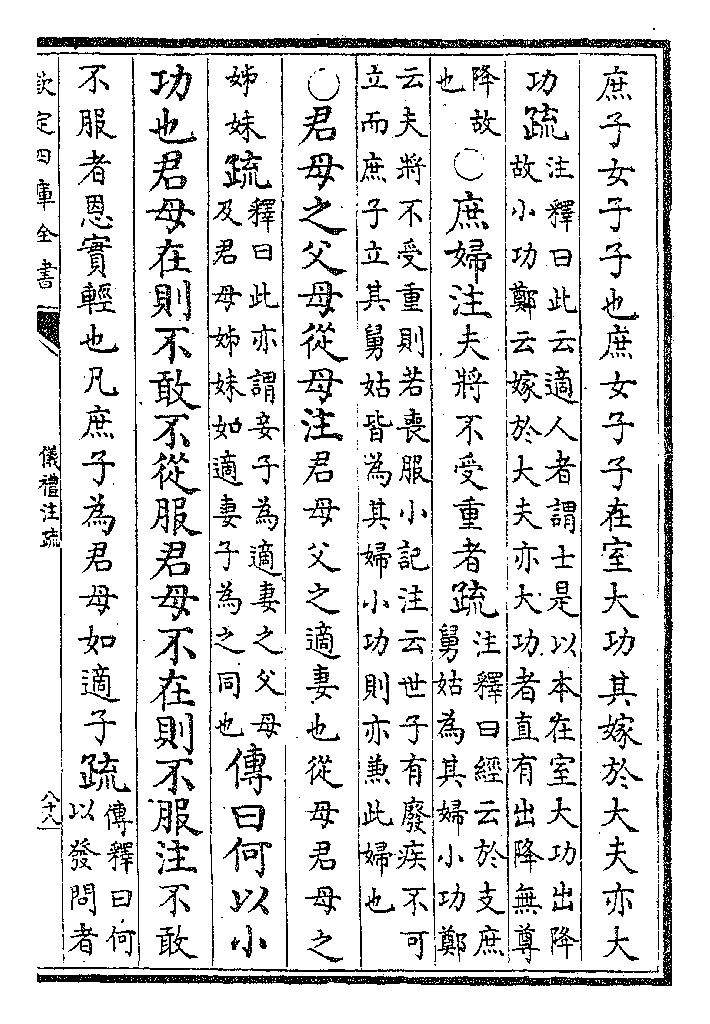 庶子女子子也庶女子子在室大功其嫁於大夫亦大
功疏注釋曰此云適人者謂士是以本在室大功出降
故小功鄭云嫁於大夫亦大功者直有出降無尊
降故
也
○庶婦注夫將不受重者疏注釋曰經云於支庶
舅姑為其婦小功鄭
云夫將不受重則若喪服小記注云世子有廢疾不可
立而庶子立其舅姑皆為其婦小功則亦兼此婦也
○君母之父母從母注君母父之適妻也從母君母之
姊妹疏釋曰此亦謂妾子為適妻之父母
及君母姊妹如適妻子為之同也
傳曰何以小
功也君母在則不敢不從服君母不在則不服注不敢
不服者恩實輕也凡庶子為君母如適子疏傳釋曰何
以發問者
欽定四庫全書
儀禮注疏
八十八